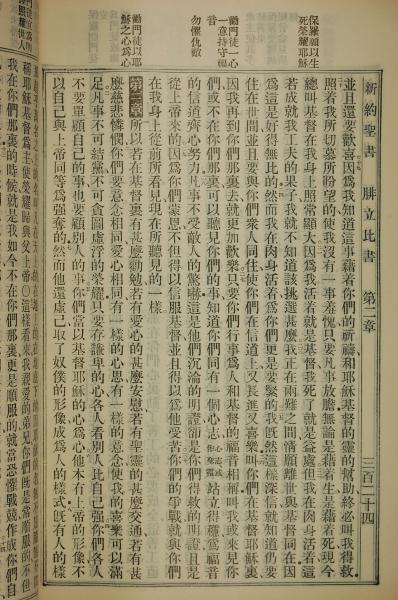 新約聖書　腓立比書　第二章　三百二十四
保羅願以生
死榮耀耶穌
勸門徒一心
一意持守福
音
勿懼仇敵
勸門徒以耶
穌之心爲心
並且還要歡喜因爲我知道這事藉着你們的祈禱和耶穌基督的靈的幫助終必叫我得救
照着我所切慕所盼望的使我沒有一事羞愧只要凡事放膽無論是藉着生是藉着死現今
總叫基督在我身上照常顯大因爲我活着就是基督我死了就是益處但我在肉身活着這
若成就我工夫的果子我就不知道該挑選甚麽我正在兩難之間情願離世與基督同在因
爲這是好得無比的然而我在肉身活着爲你們更是要緊的我旣然這樣深信就知道仍要
住在世間並且要與你們衆人同住使你們在信道上又長進又喜樂叫你們在基督耶穌裏
因我再到你們那裏去就更加歡樂只要你們行事爲人和基督的福音相稱叫我或來見你
們或不在你們那裏可以聽見你們的事知道你們同有一個心志站立得穩爲福音
的信道齊心努力凡事不受敵人的驚嚇這是他們沉淪的明證卻是你們得救的明證且是
從上帝來的因爲你們蒙恩不但得以信服基督並且得以爲他受苦你們的爭戰就與你們
在我身上從前所看見現在所聽見的一樣
第二章所以若在基督裏有甚麽勸勉若有愛心的甚麽安慰若有聖靈的甚麽交通若有甚
麽慈悲憐憫你們要意念相同愛心相同有一樣的心思有一樣的意念使我的喜樂可以滿
足凡事不可結黨不可貪圖虛浮的榮耀只要存謙卑的心各人看別人比自己強你們各人
不要單顧自己的事也要顧別人的事你們當以基督耶穌的心爲心他本有上帝的形像不
以自己與上帝同等爲強奪的然而他還虛己取了奴僕的形像成爲人的樣式旣有人的樣
稱耶穌基督爲主使榮耀歸與父上帝〇這樣看來我親愛的弟兄你們旣是常順服的不但
我在你們那裏的時候就是我如今不在你們那裏更是順服的就當恐懼戰兢作成你們自